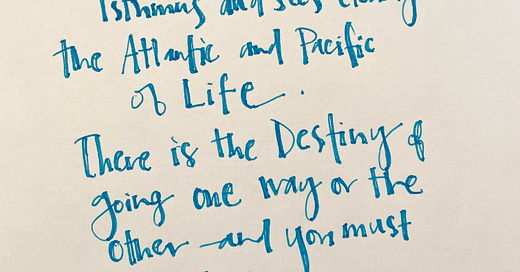 Isthmus and sees clearly
the Atlantic and Pacific
of Life.
There is the Destiny of
going one way or the
other and you must